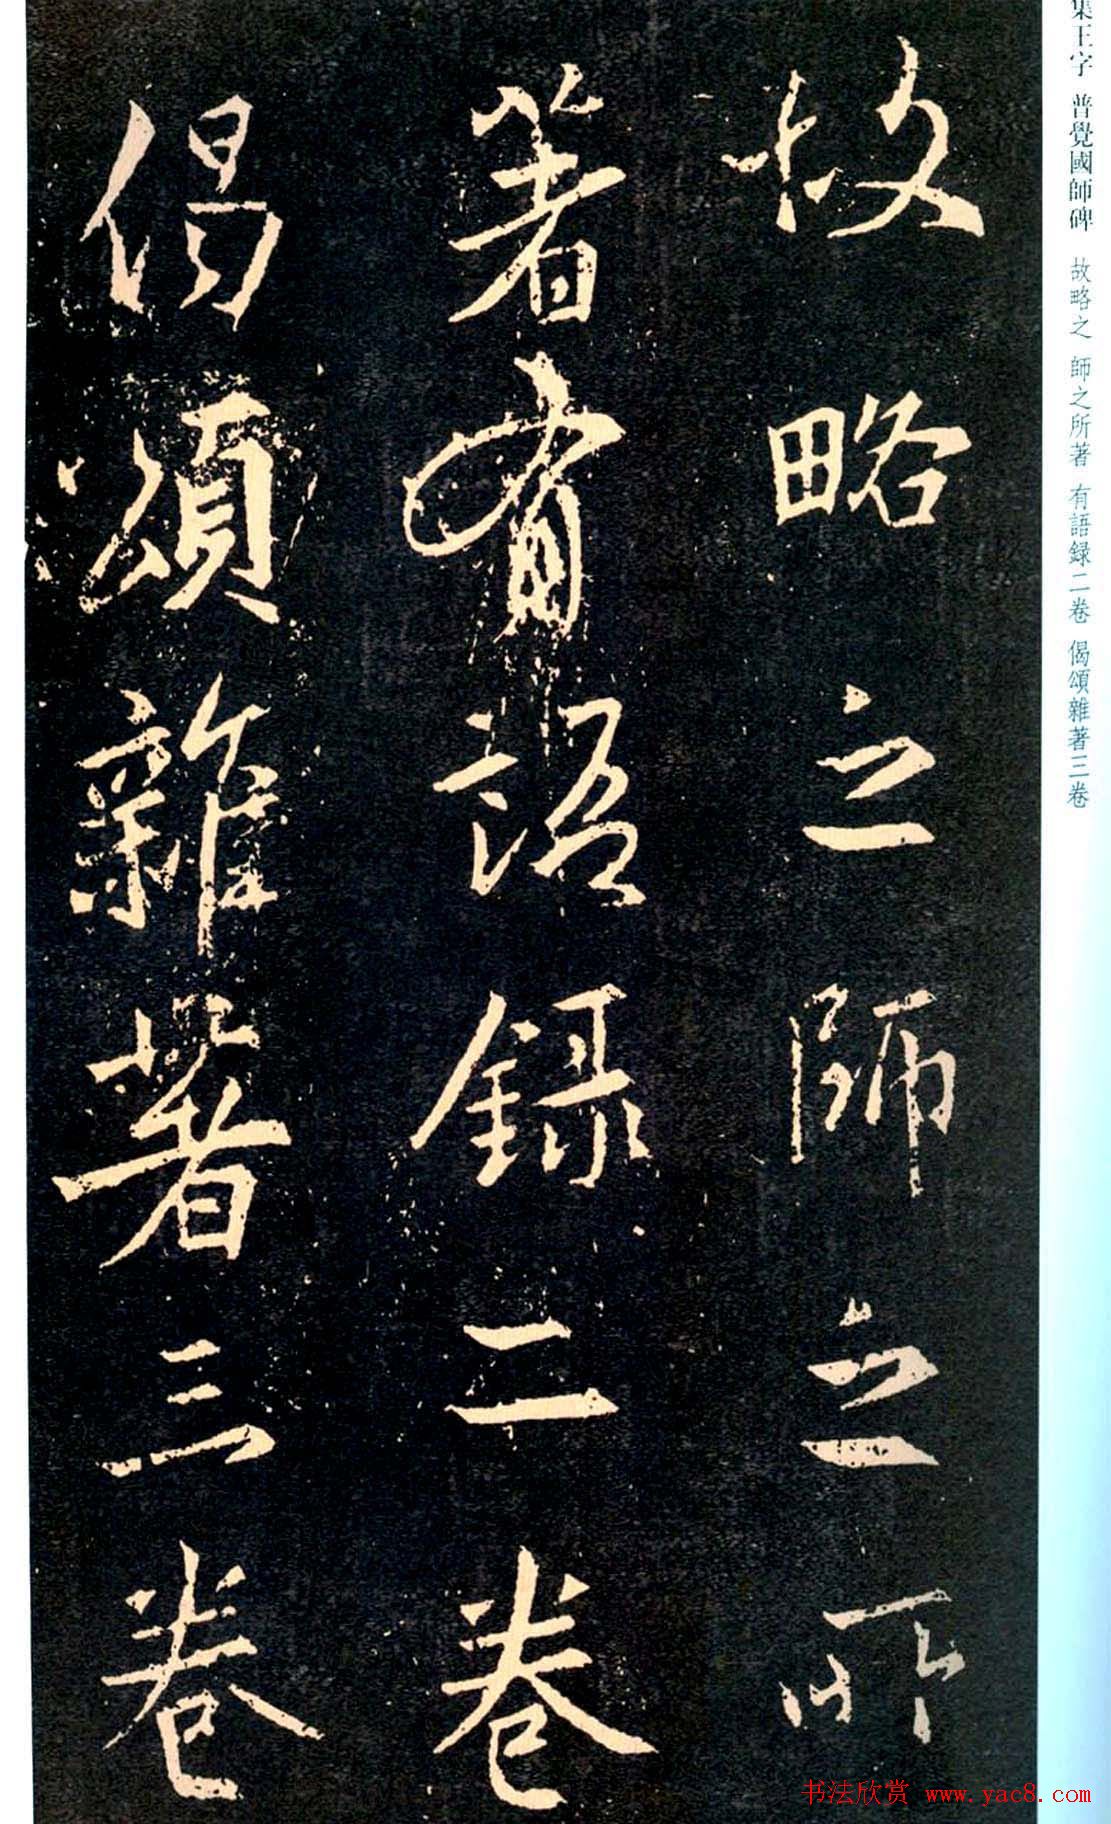 故略之師之所
著有語録二卷
偈頌雜著三卷
集王字 普覺國師碑 故略之 師之所著 有語録二卷 偈頌雜著三卷
书法欣赏 www.yac8.com